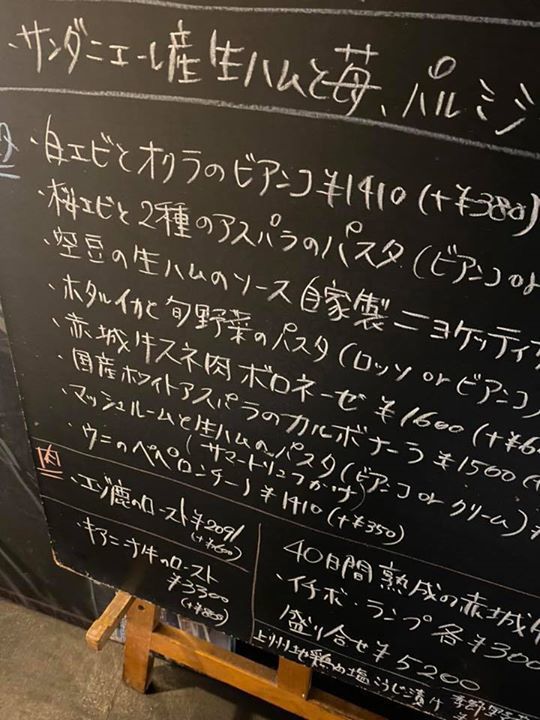 ・サンダニエーレ産生ハムと苺、パルミジ
・白エビとオクラのビアンコ ¥1410 (+¥380)
・桜エビと2種のアスパラのパスタ (ビアンコ or
・空豆の生ハムのソース 自家製ニョケッティ
・ホタルイカと旬野菜のパスタ (ロッソ or ビアンコ)
・赤城牛スネ肉ボロネーゼ ¥1600 (+¥6
・国産ホワイトアスパラのカルボナーラ ¥1500 (+
・マッシュルームと生ハムのパスタ (ビアンコ or クリーム) ¥
(サマートリュフがけ)
・ウニのペペロンチーノ ¥1410 (+¥350)
肉
・エゾ鹿のロースト ¥2091
(+¥600)
・キアニーナ牛のロースト
¥3300
(+¥800)
40日間熟成の赤城牛
・イチボ・ランプ 各¥300
盛り合せ ¥5200
上州地鶏の塩こうじ漬け 季野